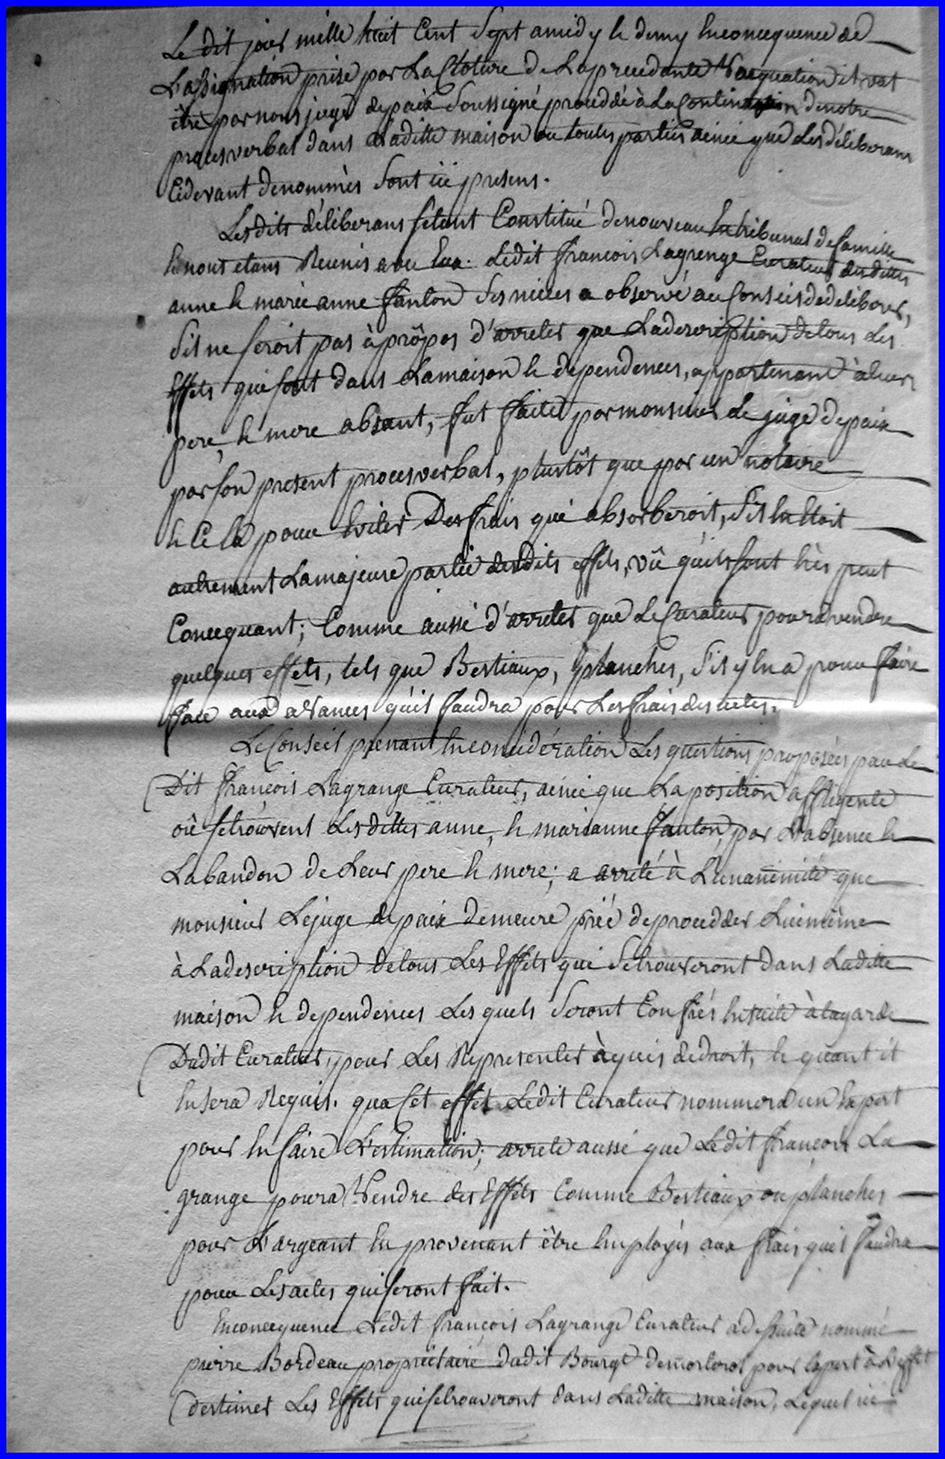 Le dit jour mille huit Cent Sept amidy & demy Enconcequence de
L'assignation prise par La Cloture de La precedante Vaquation il vat
être par nous juge de paix Soussigné proceddé à La Continuation denotre
procesverbal dans Laditte maison ou toutes parties ainsi que Les déliberans
Cidevant denommés Sont ici presens.
Lesdits déliberans S'étant Constitué denouveau En tribunal de famille
& nous étans Reunis avec Eux. Ledit francois Lagrenge Curateur desdittes
anne & marie anne fanton Ses nieces a observé au Conseil dedeliberer,
S'il ne Seroit pas à propos d'arreter que La description de tous Les
Effets qui sont dans La maison & dependences, appartenant à Leur
pere, & mere absant, fut faite par monsieur Le juge de paix
par Son present procesverbal, plustôt que par un notaire
& Ce La pour Eviter Des frais qui absorberoit, S'il En Etoit
autrement La majeure partie desdits effets, vû qu'ils sont très peut
Concequant; Comme aussi d'arreter que Le Curateur poura vendre
quelques effets, tels que Bestiaux, & planches, S'il y En a pour faire
face aux avances qu'il faudra pour Les frais des actes.
Le Conseil prenant En considération Les questions proposées par Le
Dit francois Lagrange Curateur, ainsi que La position affligente
où se trouvent Lesdittes anne, & marianne fanton, par L'absence &
Labandon de Leur pere & mere; a arreté à L'unanimité que
monsieur Le juge de paix demeure prié de procedder Lui même
à La description de tous Les Effets qui Se trouveront dans Laditte
maison & dependences Les quels Seront Confiés Ensuite à La garde
Dudit Curateur, pour Les Representer à qui de droit, & quant il
En sera Requis. qua Cet effet Ledit Curateur nommera un Expert
pour En faire L'estimation; arrete aussi que Ledit francois La
grange poura Vendre des Effets Comme Bestiaux ou planches
pour L'argeant En provenant être Employés aux frais qu'il faudra
pour Les actes qui Seront fait.
Enconcequence Ledit francois Lagrange Curateur a de Suite nommé
pierre Bordeau propriétaire dudit Bourgt pour Expert à L'effet
destimer Les Effets qui se trouveront dans Laditte maison, Lequel ici